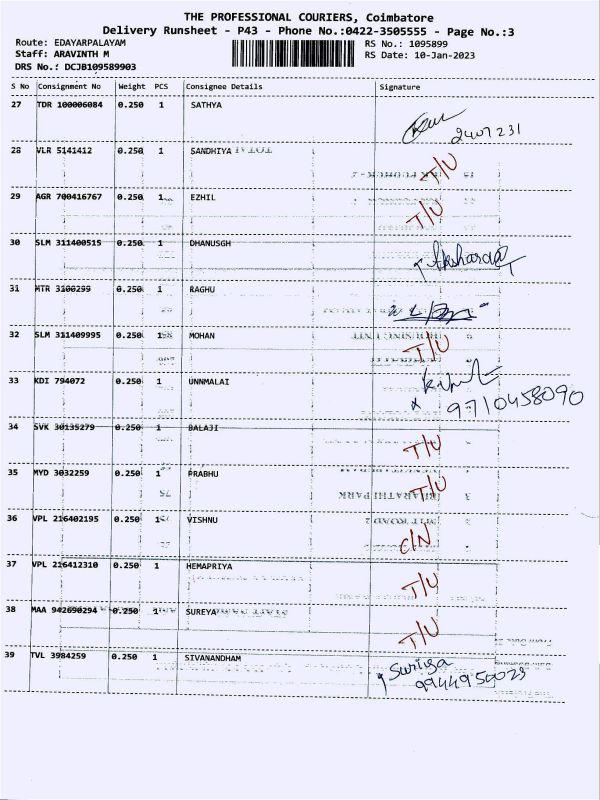 THE PROFESSIONAL COURIERS, Coimbatore
Delivery Runsheet - P43 - Phone No.:0422-3505555 - Page No.:3
Route: EDAYARPALAYAM RS No.: 1095899
Staff: ARAVINTH M RS Date: 10-Jan-2023
DRS No.: DCJB109589903
S No Consignment No Weight PCS Consignee Details Signature
27 TDR 100006084 0.250 1 SATHYA
2407231
28 VLR 5141412 0.250 1 SANDHIYA T/U
29 AGR 700416767 0.250 1 EZHIL T/U
30 SLM 311400515 0.250 1 DHANUSGH
31 MTR 3100299 0.250 1 RAGHU
32 SLM 311409995 0.250 1 MOHAN T/U
33 KDI 794072 0.250 1 UNNMALAI
9710458090
34 SVK 30135279 0.250 1 BALAJI T/U
35 MYD 3032259 0.250 1 PRABHU T/U
36 VPL 216402195 0.250 1 VISHNU C/N
37 VPL 216412310 0.250 1 HEMAPRIYA T/U
38 MAA 942690294 0.250 1 SUREYA T/U
39 TVL 3984259 0.250 1 SIVANANDHAM
9944950029